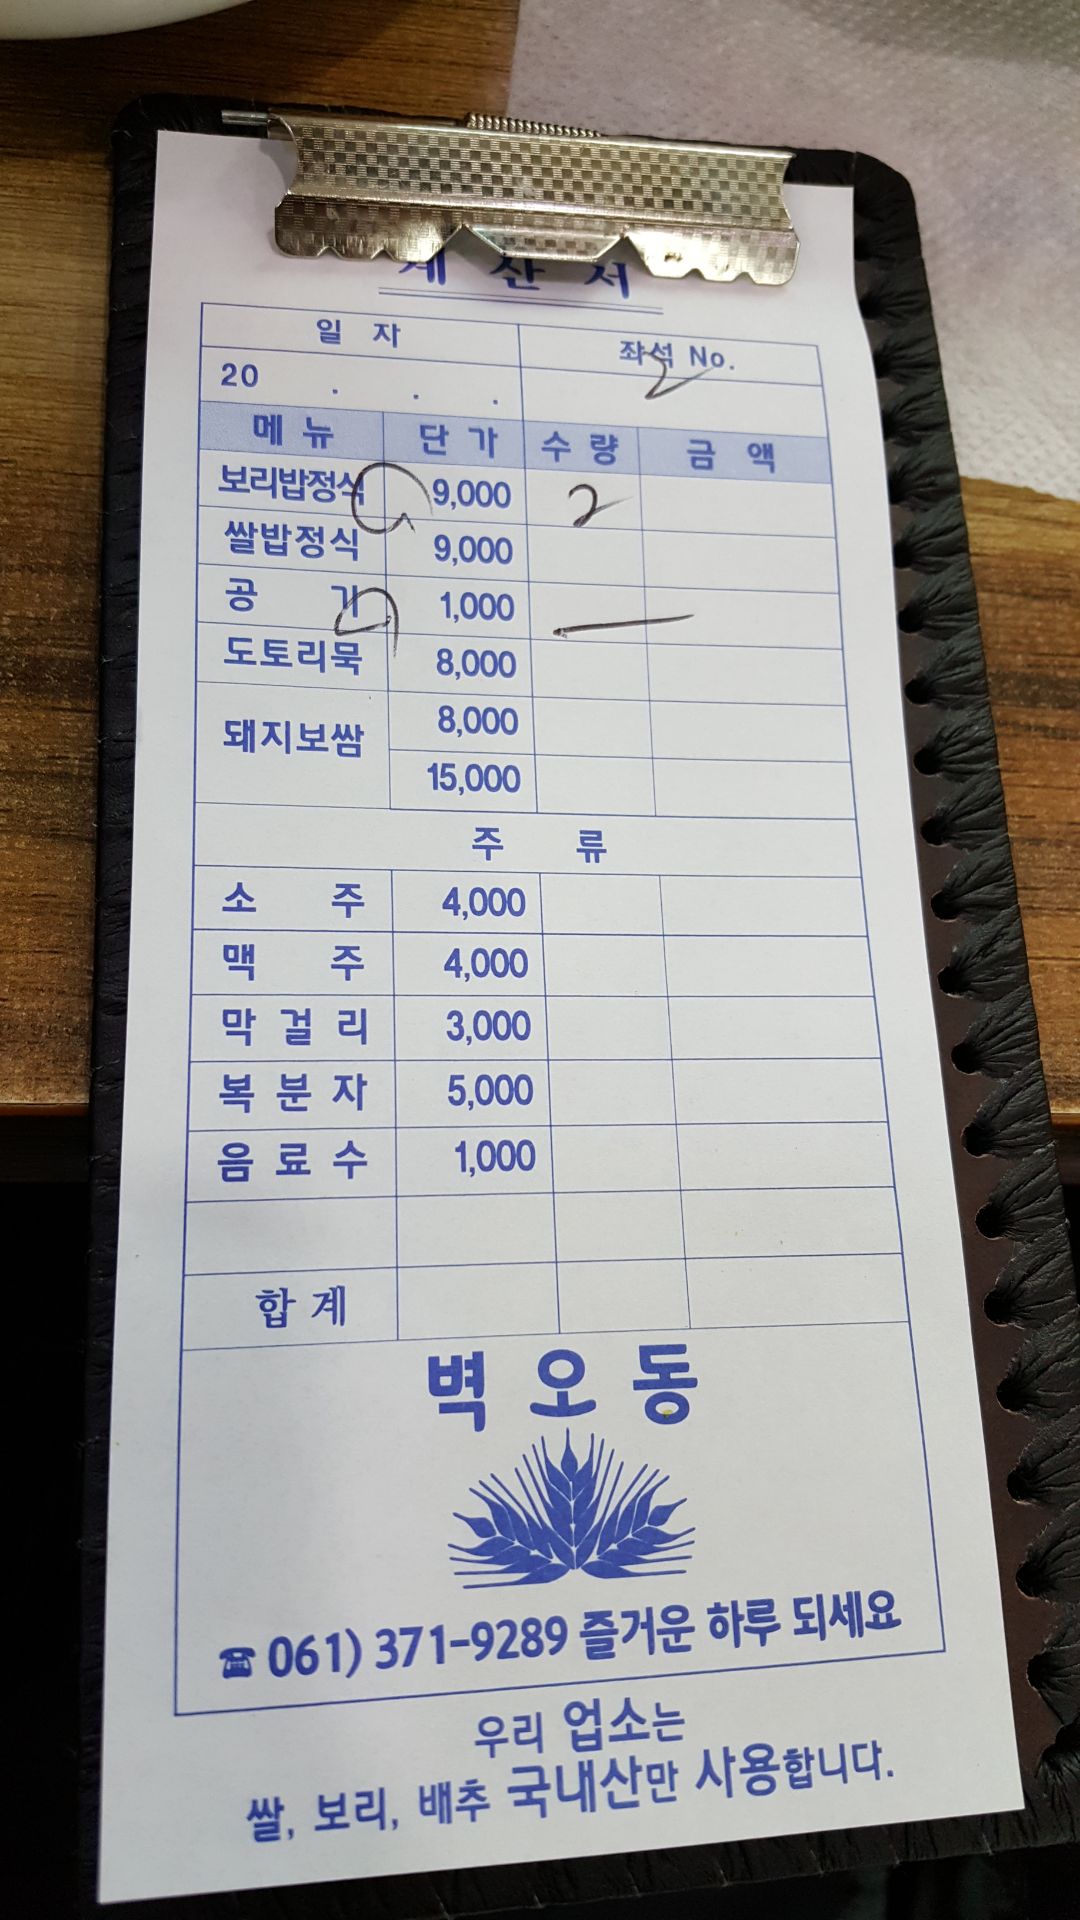 계 산 서
일 자 좌석 No.
20 . . . 2
메 뉴 단 가 수 량 금 액
보리밥정식 9,000 2
쌀밥정식 9,000
공 기 1,000 ㅡ
도토리묵 8,000
돼지보쌈 8,000
15,000
주 류
소 주 4,000
맥 주 4,000
막 걸 리 3,000
복 분 자 5,000
음 료 수 1,000
합 계
벽 오 동
☎ 061) 371-9289 즐거운 하루 되세요
우리 업소는
쌀, 보리, 배추 국내산만 사용합니다.